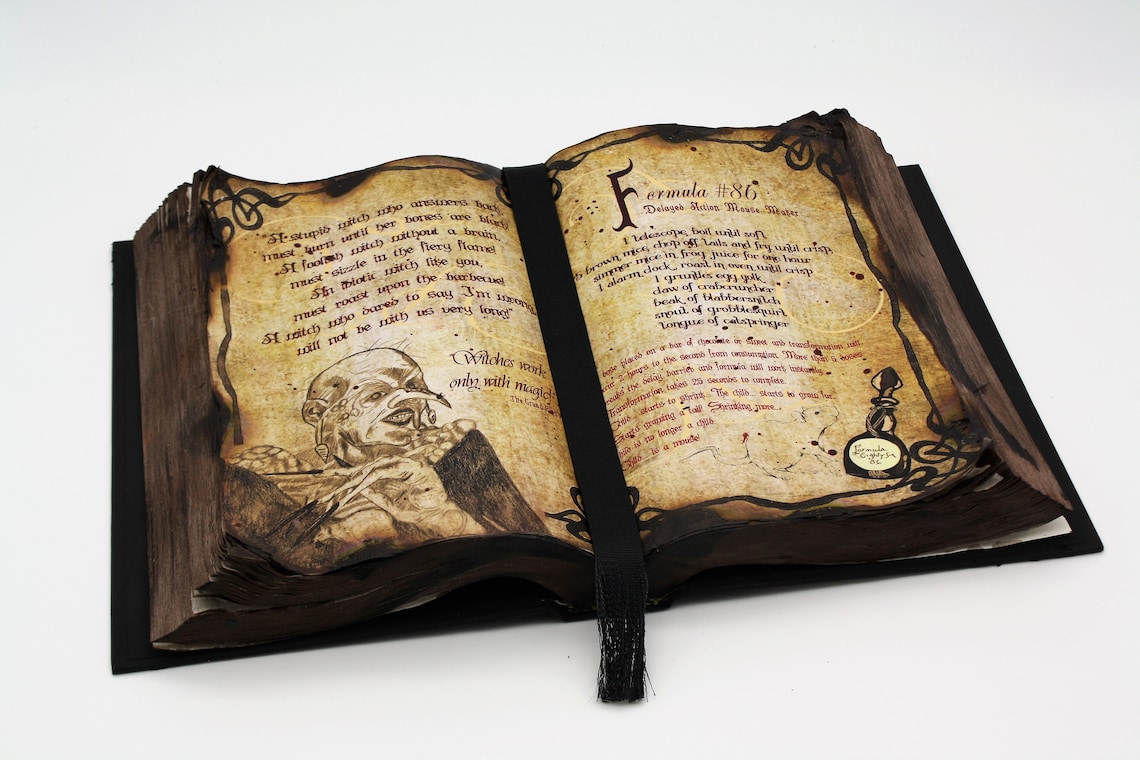 "A stupid witch who answers back,
must burn until her bones are black!
A foolish witch without a brain,
must sizzle in the fiery flame!
An idiotic witch like you,
must roast upon the barbecue!
A witch who dares to say "I'm wrong"
will not be with us very long!"
Witches work
only with magic!
Formula #86
Delayed Action Mouse Maker
1 telescope, boil until soft
brown mice, chop off tails and fry until crisp
simmer mice in frog juice for one hour
1 alarm clock, roast in oven until crisp
1 gruntles egg yolk
claw of crabcruncher
beak of blabbersnitch
snout of grobblesquirt
tongue of catspringer
placed on a bar of chocolate or sweet and transformation will
2 hours to the second from consumption. More than 5 doses
breaks the delay barrier and formula will work instantly.
Transformation takes 25 seconds to complete.
Child... starts to shrink. The child... starts to grow fur...
Starts growing a tail! Shrinking more...
Child is no longer a child.
Child.. is a mouse!
Formula
Eighty Six
86